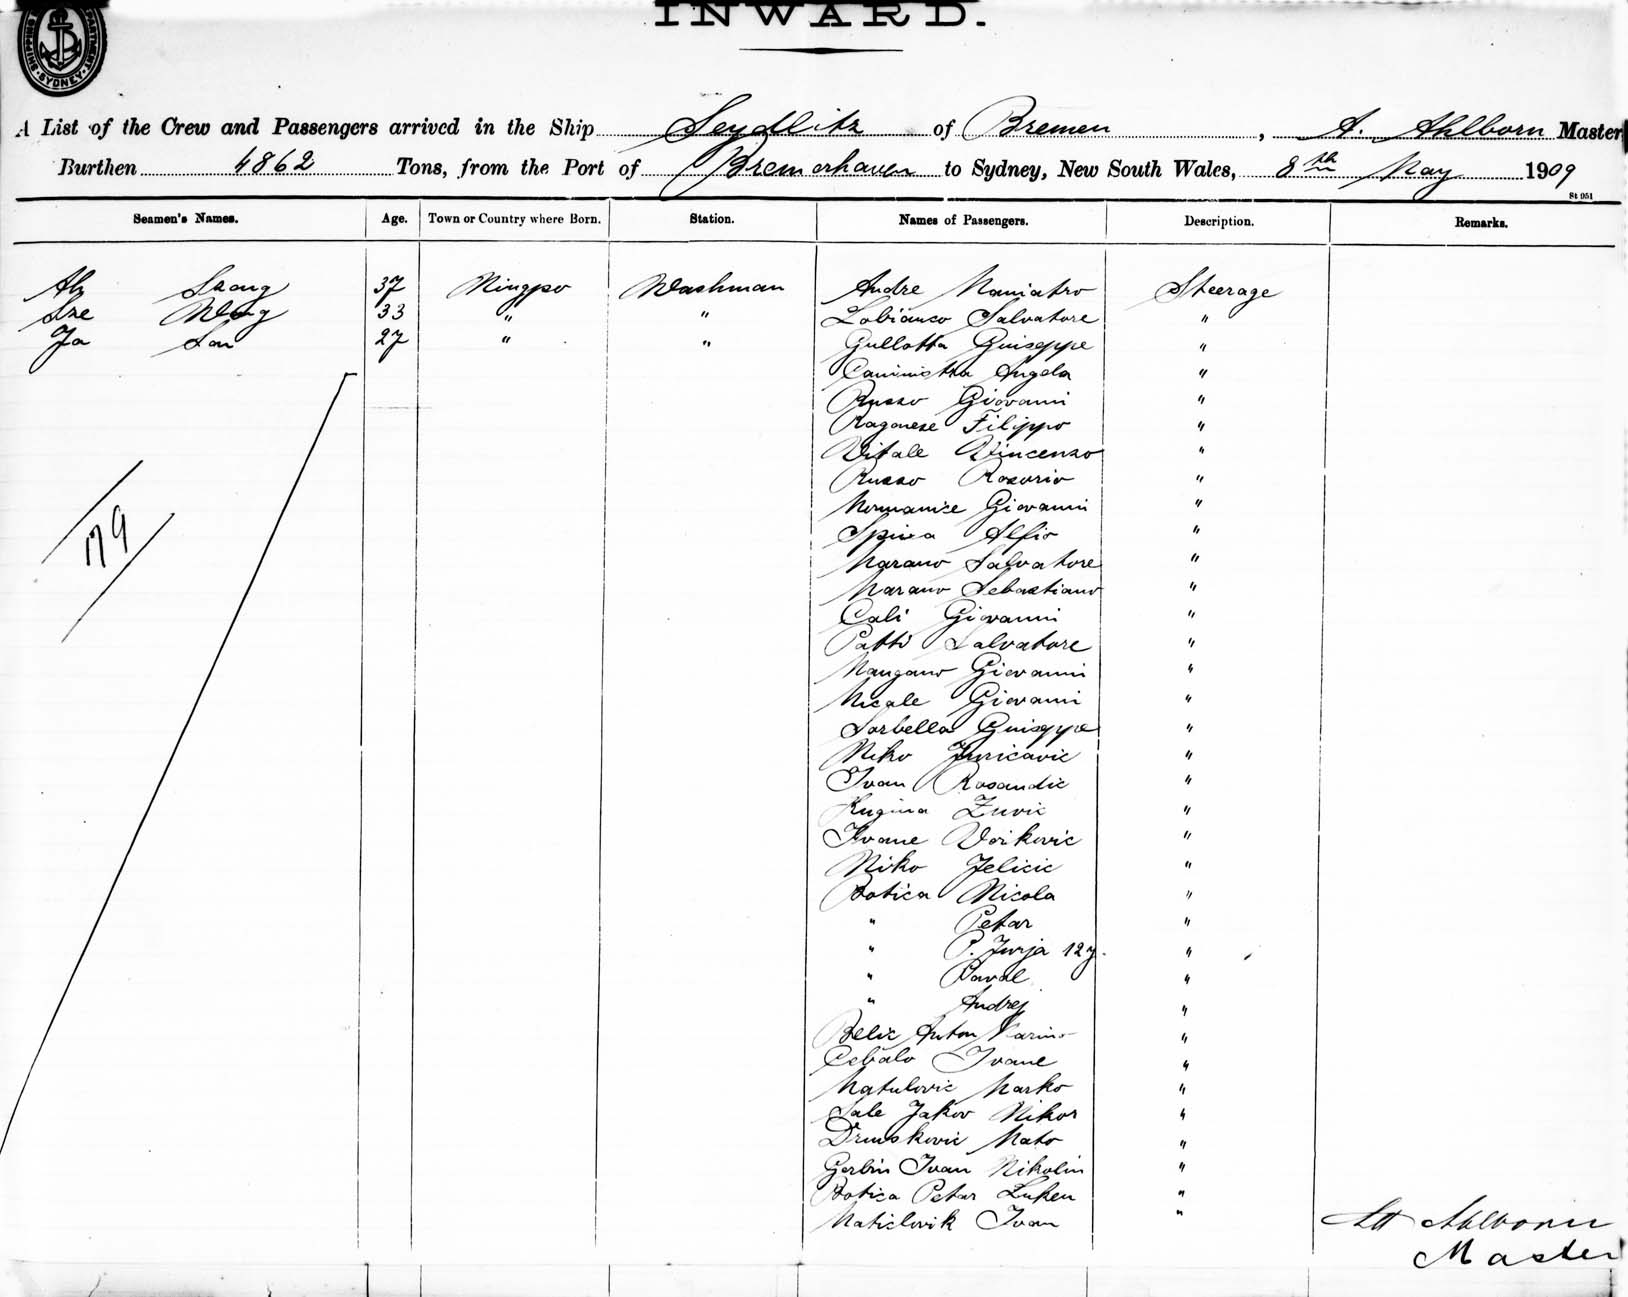 INWARD.
SHIPPING
SYDNEY
A List of the Crew and Passengers arrived in the Ship Seydlitz of Bremen, A. Ahlborn Master
Burthen 4862 Tons, from the Port of Bremerhaven to Sydney, New South Wales, 8th May 1909
St 951
Seamen's Names. Age. Town or Country where Born. Station. Names of Passengers. Description. Remarks.
Ah 37 Ningpo Washman Andre Maniatro Steerage
Sze Wong 33 " " Lobianco Salvatore "
Ja San 27 " " Gullotta Guiseppe "
Caninistra Angela "
Russo Giovanni "
Ragonese Filippo "
Vitale Vincenzo "
Russo Rosario "
Giovanni "
Spina Alfio "
Marano Salvatore "
Marano Sebastiano "
Cali Giovanni "
Patti Salvatore "
Mangano Giovanni "
Micale Giovanni "
Sorbella Guiseppe "
Niko Juricavic "
Ivan Rosandic "
Zuvic "
Ivane Voikovic "
Niko Jelicic "
Botica Nicola "
" Petar "
" P. Jurja 12 y. "
" Paval "
" Andrej "
Belic Anton Marino "
Cebalo Ivane "
Matulovic Marko "
Sale Jakov Nikov "
Druskovic Mato "
Gerbin Ivan Nikolin "
Botica Petar Luken "
Maticlovik Ivan "
179
Ahlborn
Master